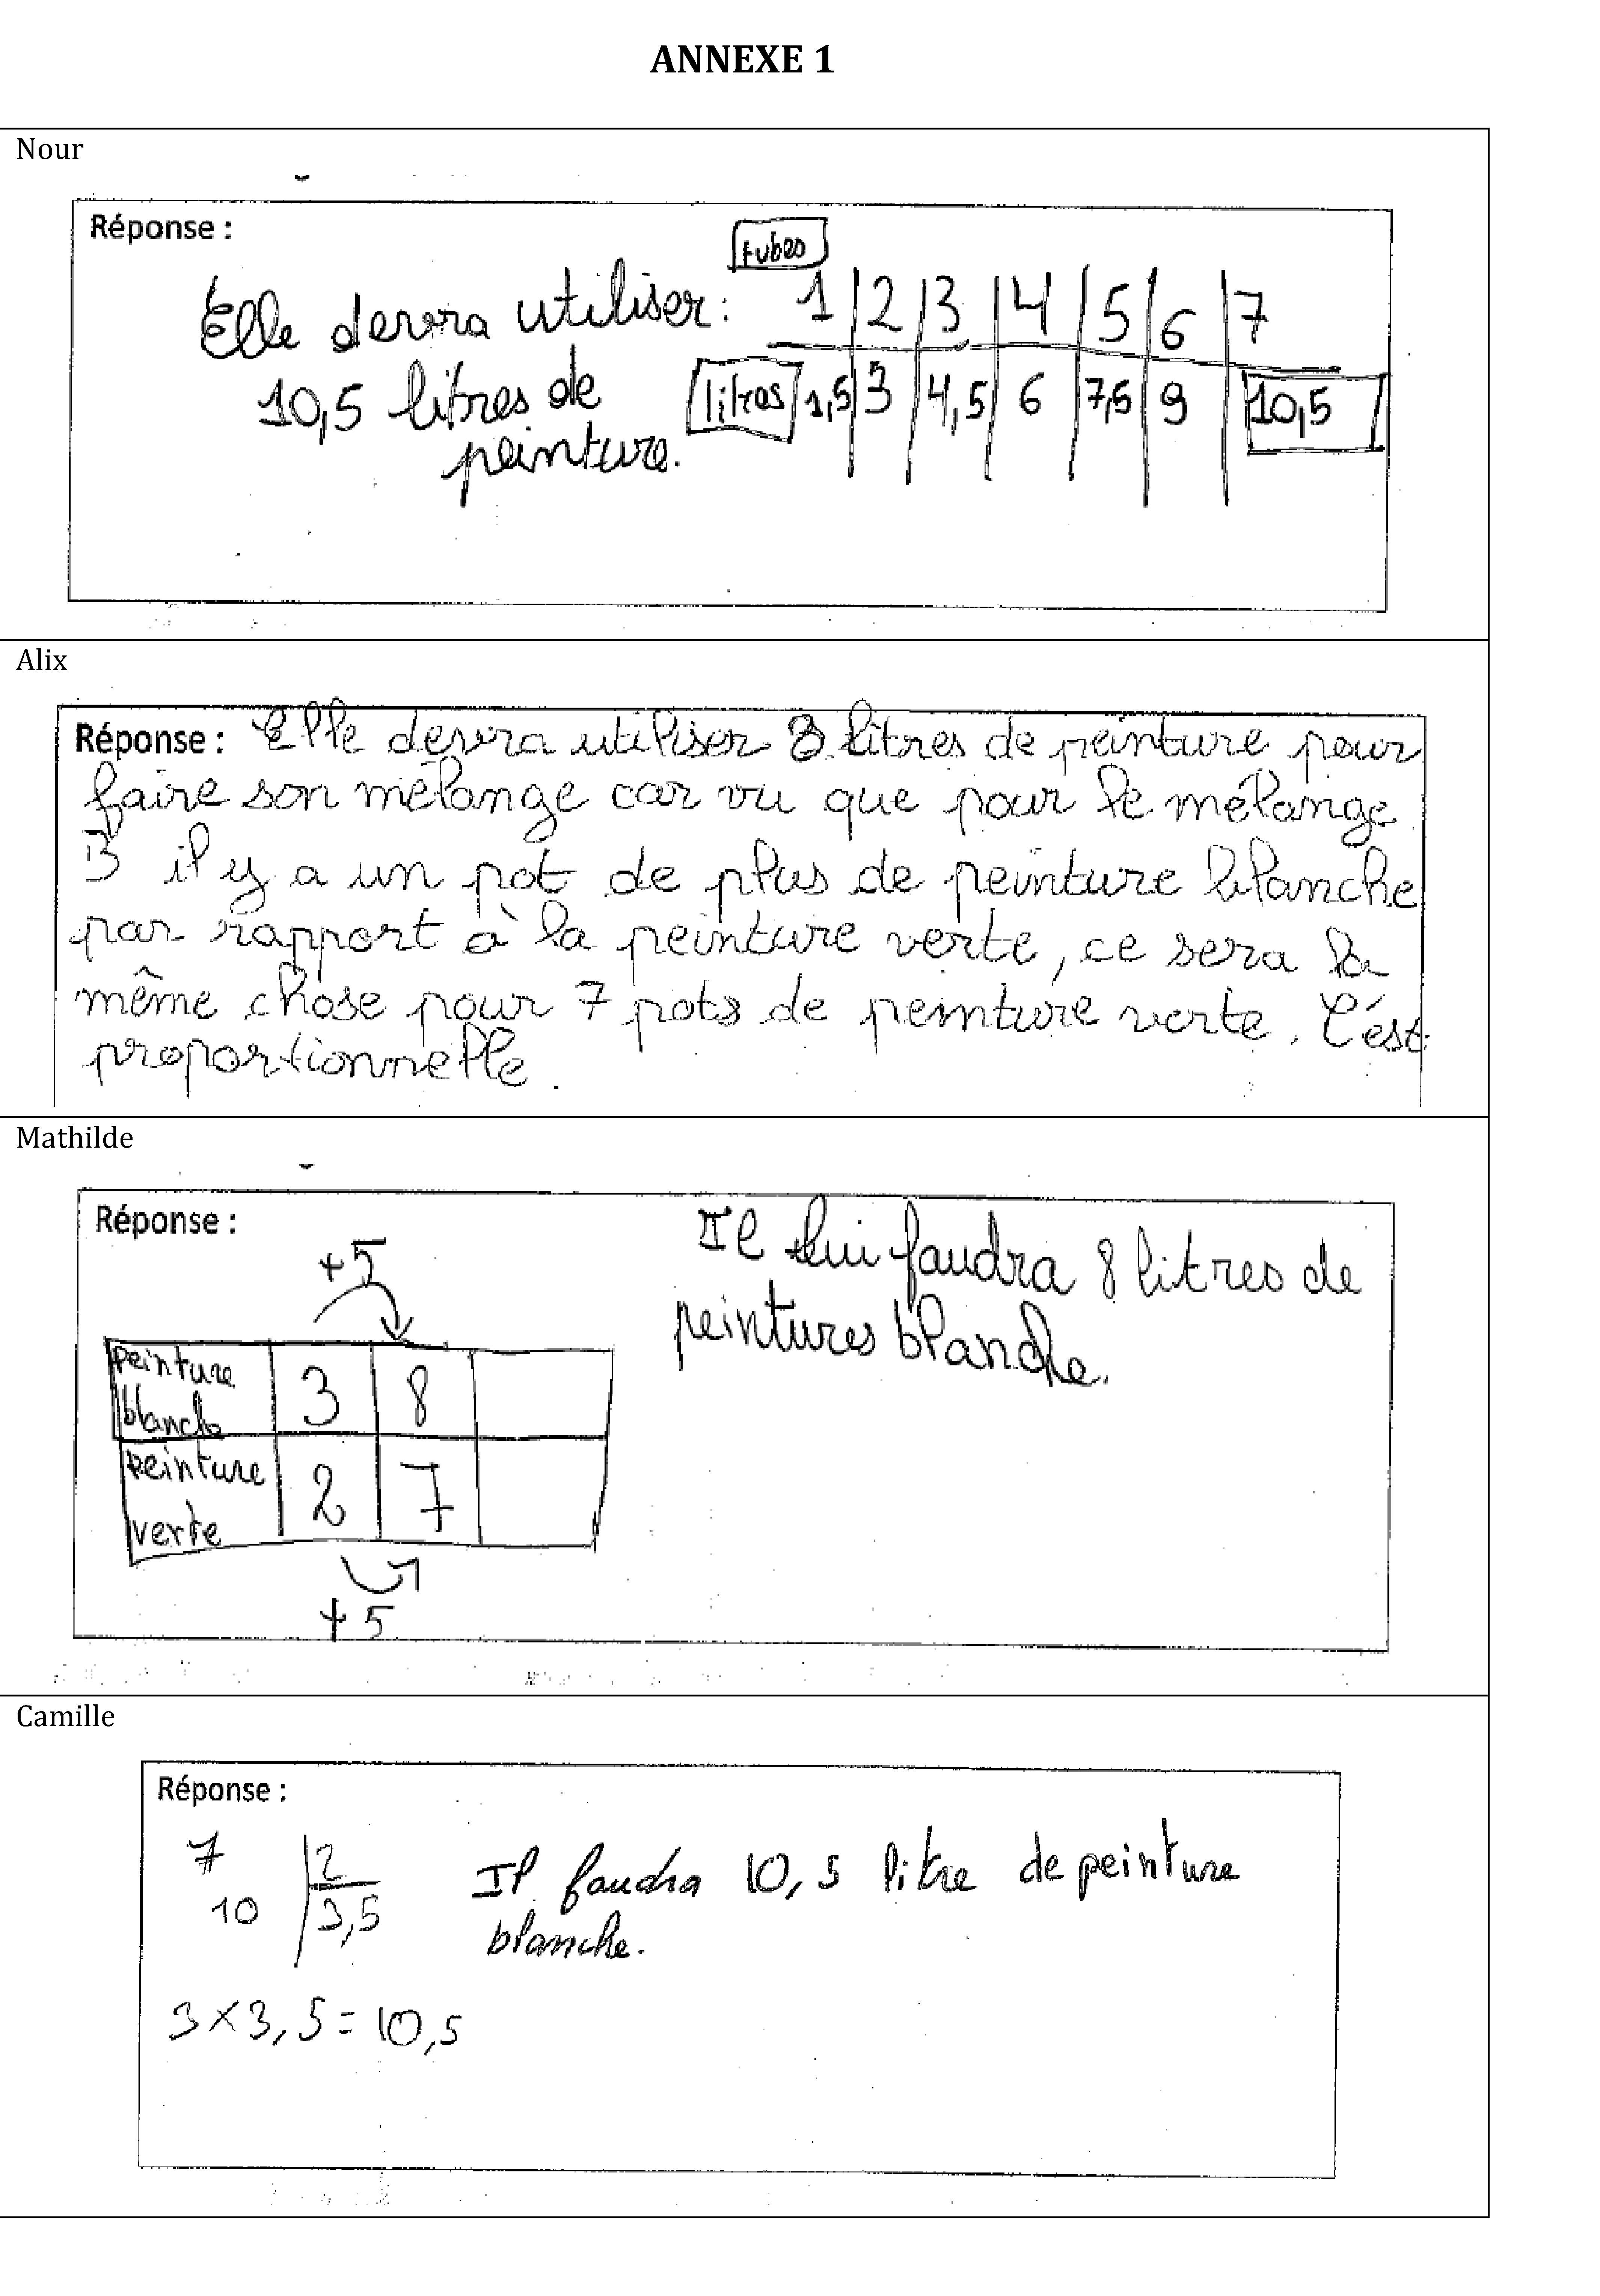 ANNEXE 1
Nour
Réponse :
tubes
Elle devra utiliser : 1 2 3 4 5 6 7
10,5 litres de litres 1,5 3 4,5 6 7,5 9 10,5
peinture.
Alix
Réponse : Elle devra utiliser 8 litres de peinture pour
faire son mélange car vu que pour le mélange
B il y a un pot de plus de peinture blanche
par rapport à la peinture verte, ce sera la
même chose pour 7 pots de peinture verte. C'est
proportionnelle.
Mathilde
Réponse :
Il lui faudra 8 litres de
peintures blanche.
+5
peinture blanche 3 8
peinture verte 2 7
+5
Camille
Réponse :
7 2
10 3,5
Il faudra 10,5 litre de peinture
blanche.
3 × 3,5 = 10,5